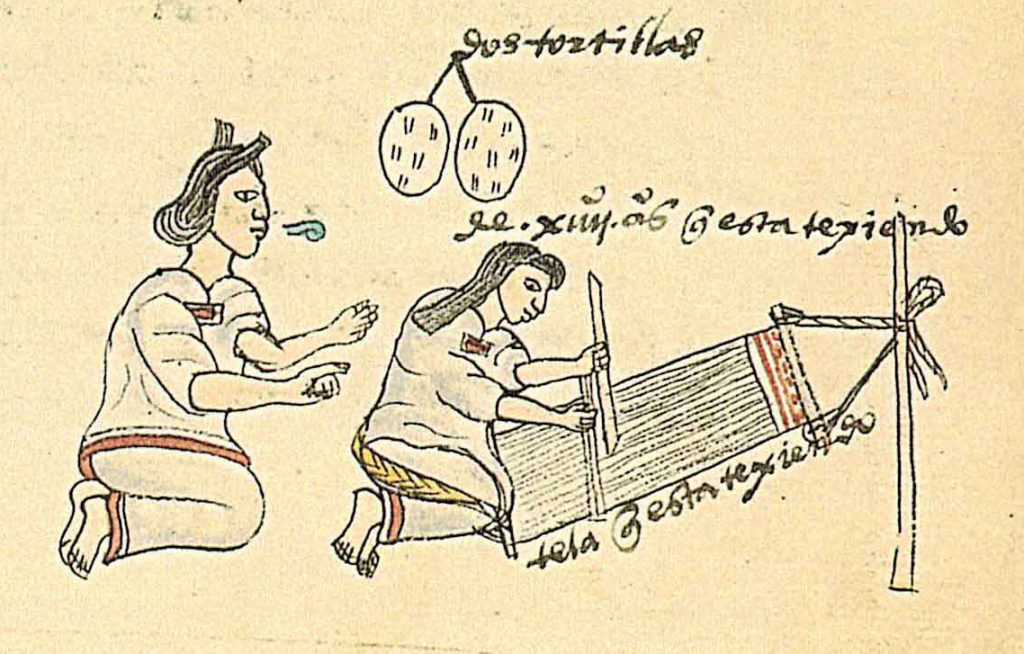 dos tortillas
de . xiiij . aᵒs q̃ esta texiendo
tela q̃ esta texiendo